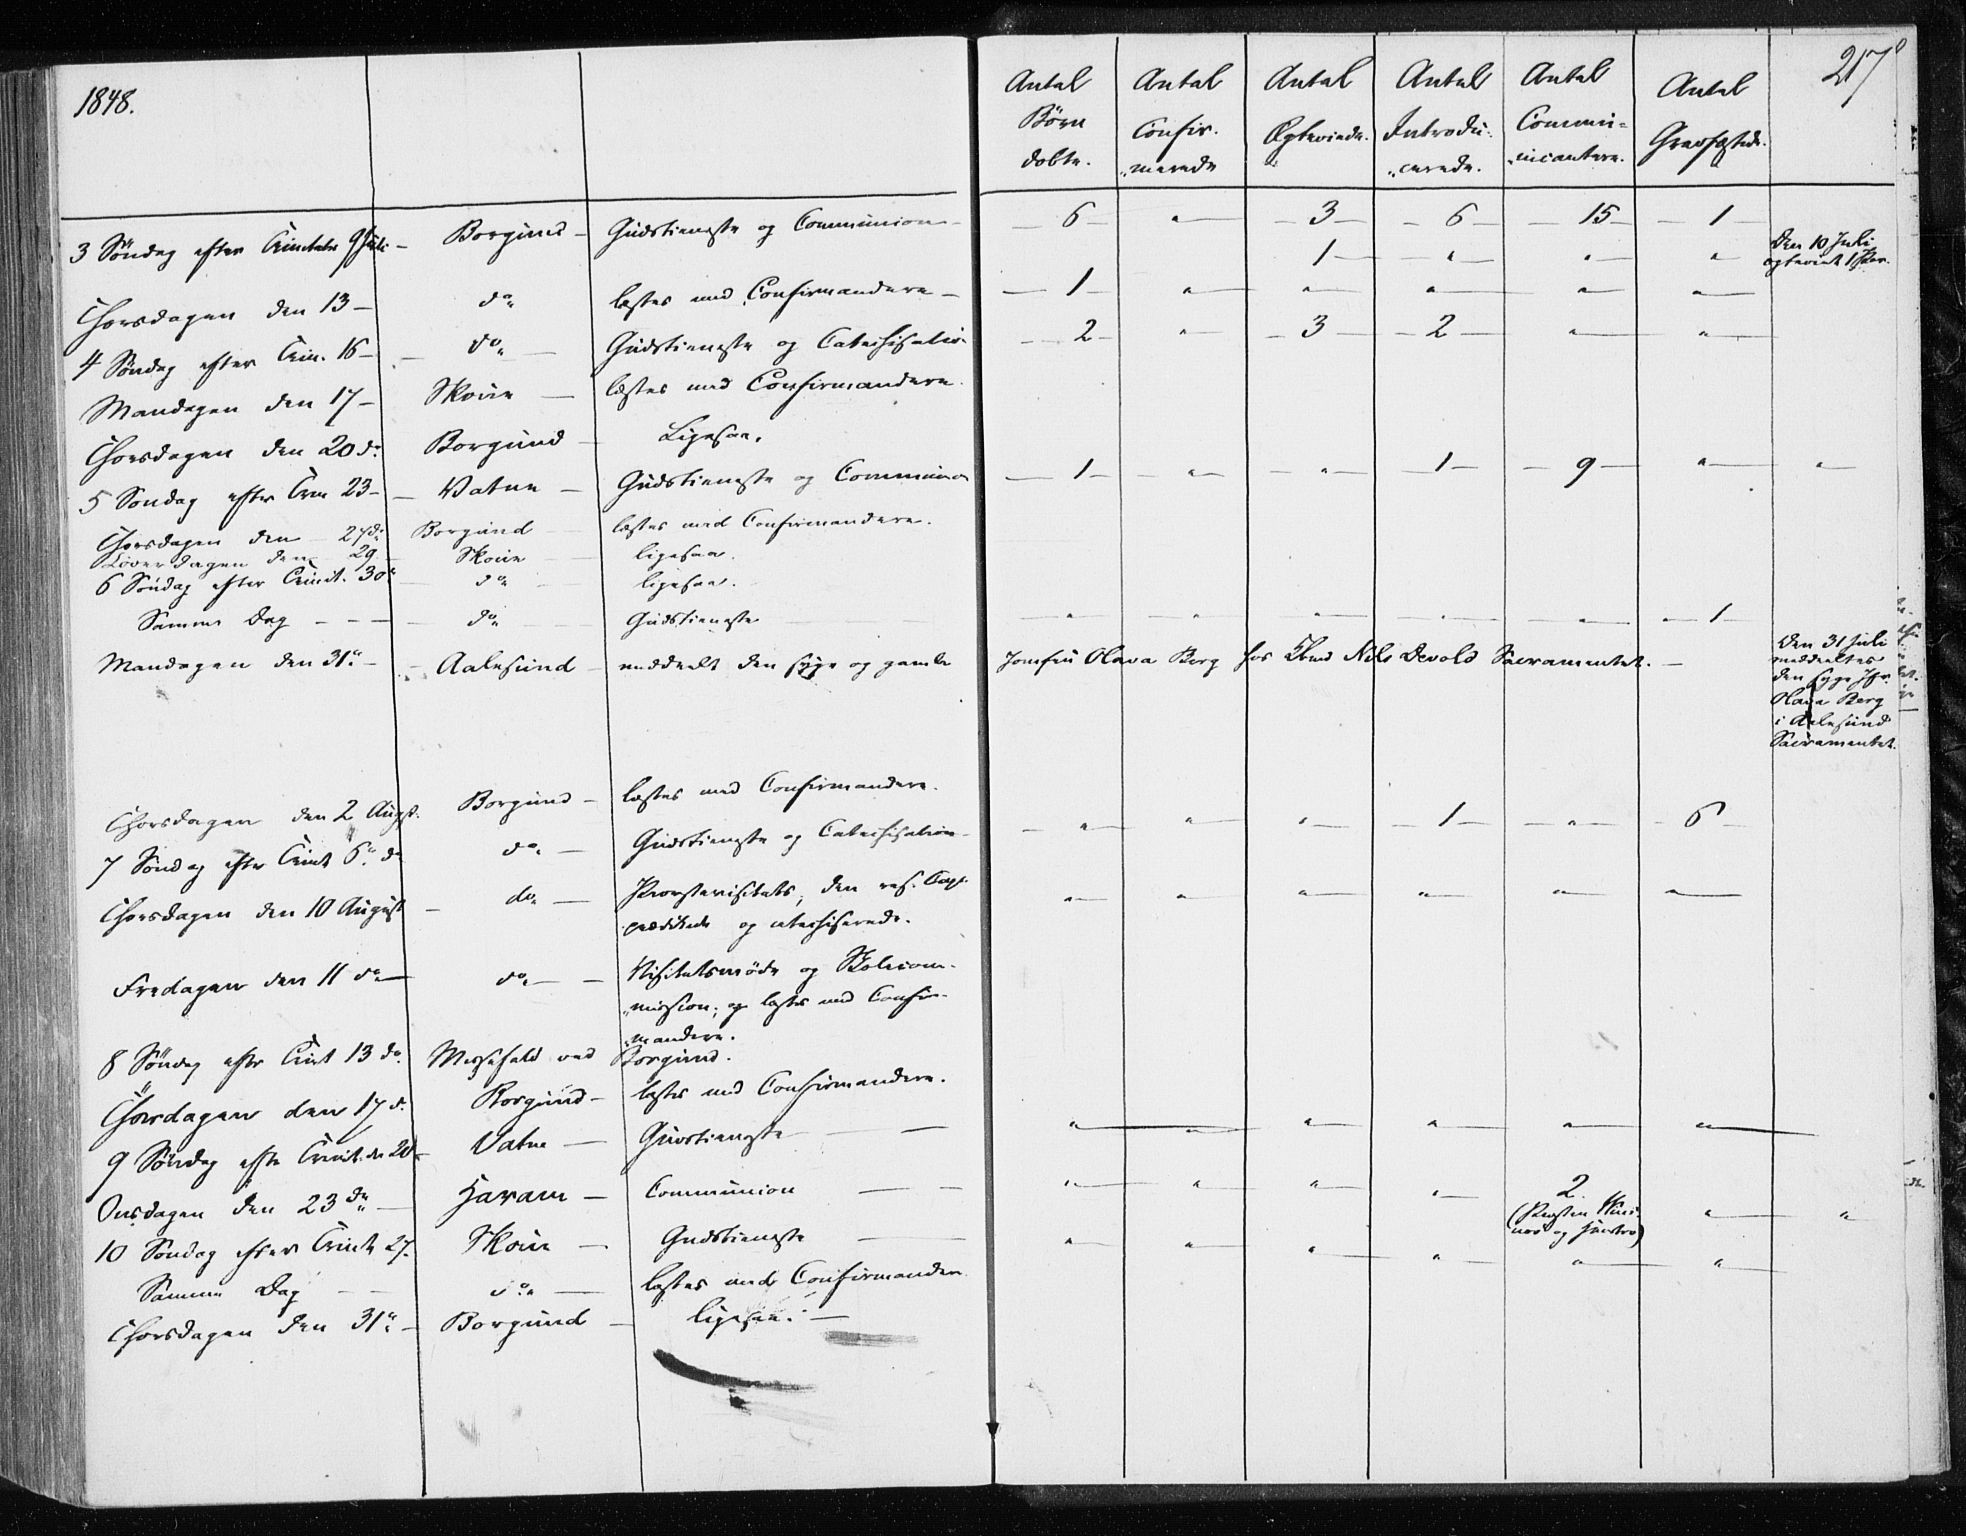 1848.
Antal Børn døbte.
Antal Confir-merede
Antal Ægteviede.
Antal Introdu-cerede.
Antal Commu-nicantere.
Antal Gravfæstede.
217
3 Søndag efter Trinitatis 9 Juli - Borgund - Gudstieneste og Communion - 6 - " - 3 - 6 - 15 - 1 -
1 - " - " - " Den 10 Juli
ægteviet 1 Par.
Thorsdagen den 13 - do læstes med Confirmandere - 1 - " - " - " - " - "
4 Søndag efter Trin. 16 - do - Gudstieneste og Catechisation - 2 - " - 3 - 2 - " - "
Mandagen den 17 - Skoue - læstes med Confirmandere.
Thorsdagen den 20 do Borgund - Ligesaa.
5 Søndag efter Trin 23 - Vatne - Gudstieneste og Communion - 1 - " - " - 1 - 9 - " - "
Thorsdagen den 27 do Borgund læstes med Confirmandere.
Løverdagen den 29 Skoue ligesaa.
6 Søndag efter Trinit. 30 - do - ligesaa.
Samme Dag - - - do Gudstieneste " - " - " - " - " - 1 -
Mandagen den 31 - Aalesund - meddeelt den syge og gamle Jomfru Olava Berg hos Nils Devold Sacramentet. -
Den 31 Juli
meddeeltes
den syge Jfr.
Olava Berg
i Aalesund
Sacramentet.
Thorsdagen den 2 August. Borgund - læstes med Confirmandere.
7 Søndag efter Trinit 6 do do - Gudstieneste og Catechisation - " - " - " - 1 - " - 6 -
Thorsdagen den 10 August - do - Provstevisitats, den res. Cap. " - " - " - " - " - "
prædikede og catechiserede.
Fredagen den 11 do - do - Visitatsmøde og Skolecom-
mission; og læstes med Confir-
mandere.
8 Søndag efter Trint 13 do. Messefald ved Borgund.
Thorsdagen den 17 d. Borgund - læstes med Confirmandere.
9 Søndag efter Trinit. den 20 - Vatne - Gudstieneste - " - " - " - " - " - "
Onsdagen den 23 do - Haram - Communion - " - " - " - " - 2. - " - "
(Præsten
og Hustro)
10 Søndag efter Trinit. 27. Skoue - Gudstieneste - " - " - " - " - " - "
Samme Dag - - do - læstes med Confirmandere
Thorsdagen den 31 - Borgund - ligesaa. -